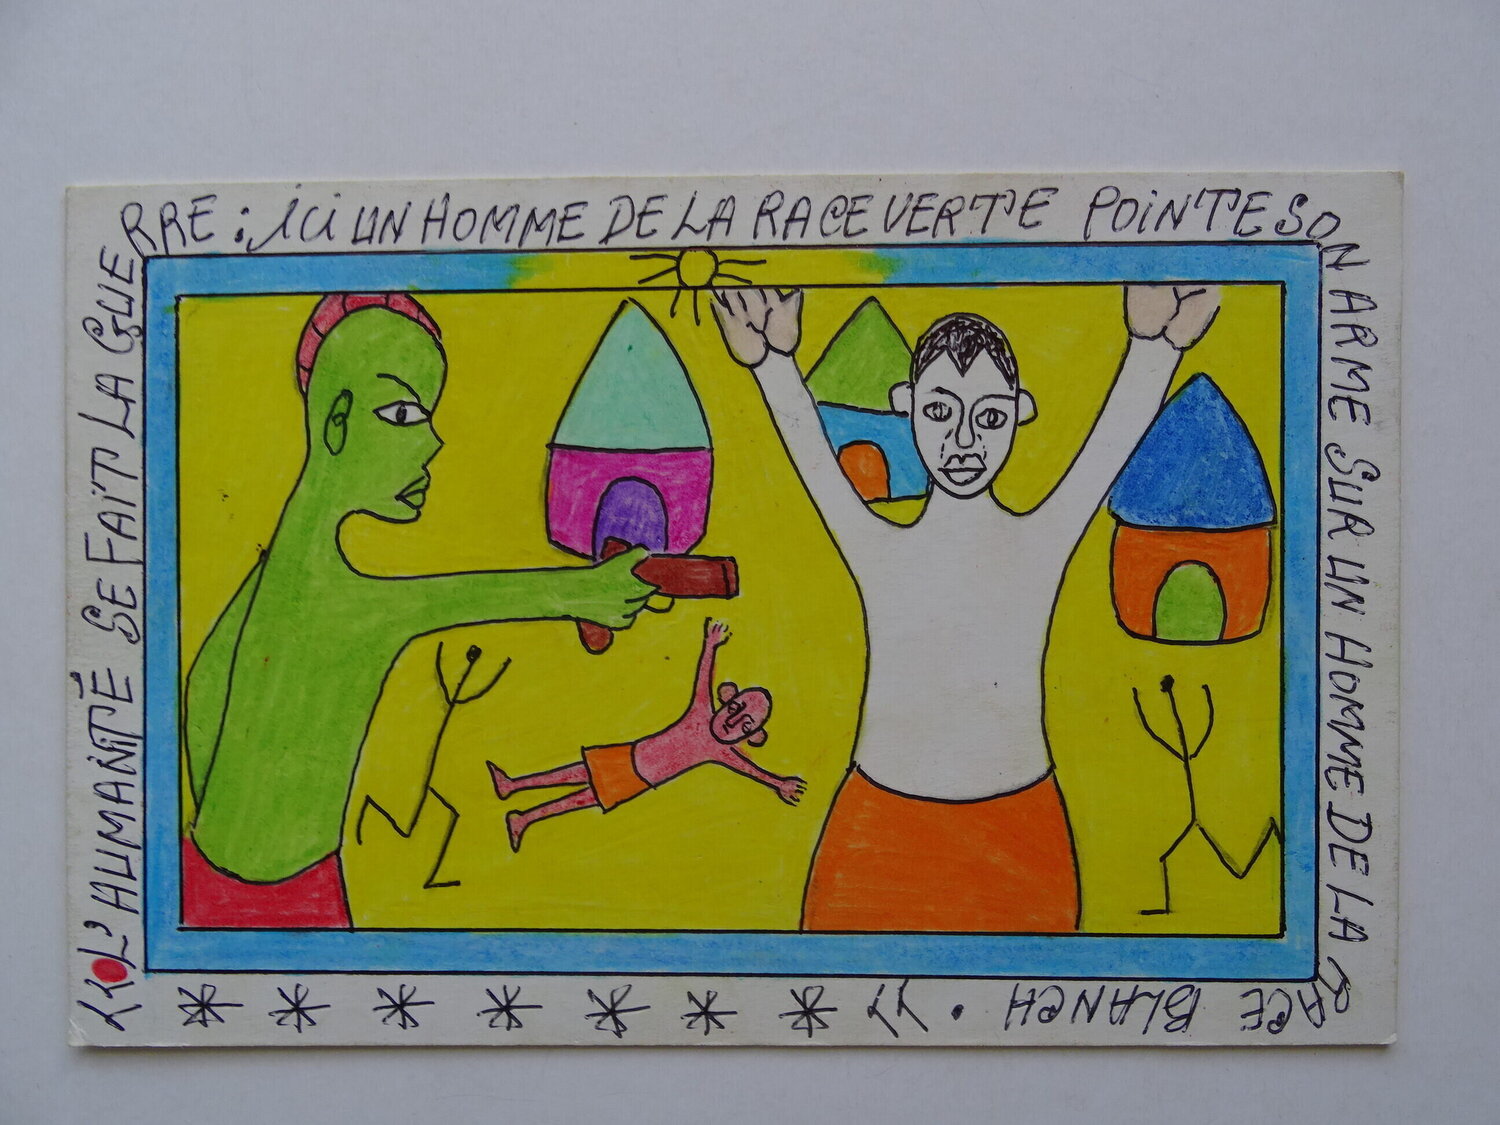 « L'HUMANITÉ SE FAIT LA GUE
RRE : ICI UN HOMME DE LA RACE VERTE POINTE SO
N ARME SUR UN HOMME DE LA
RACE BLANCH . »